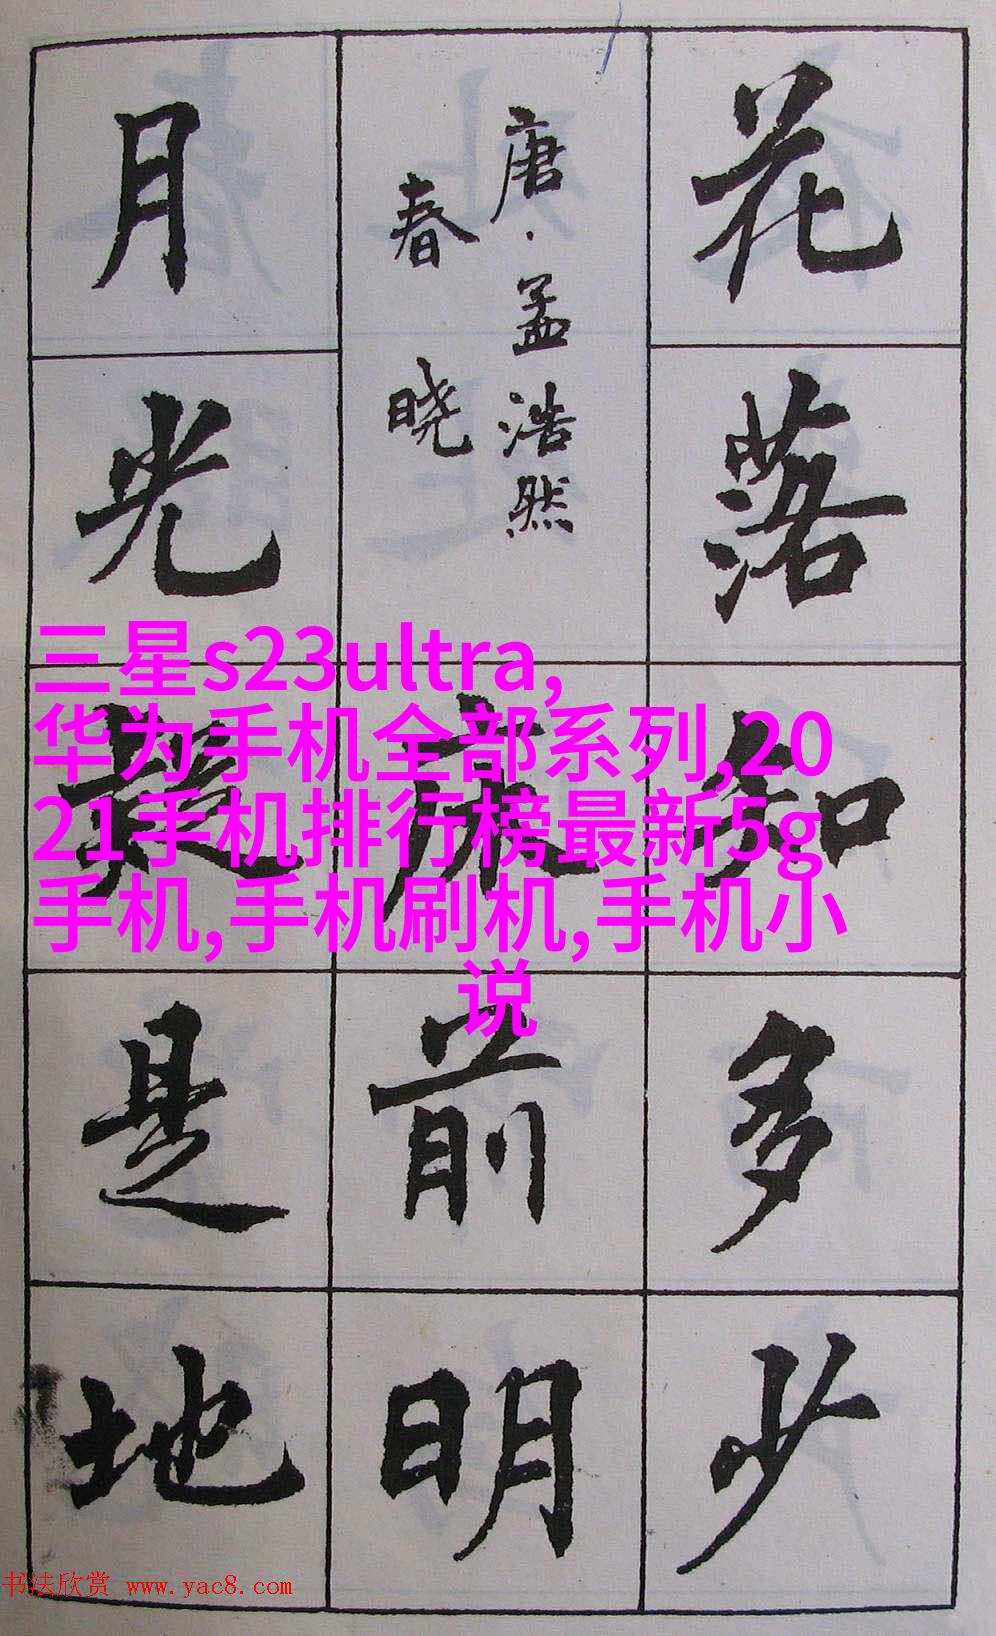 花落知多少
唐·孟浩然
春晓
床前明
月光疑是地
三星s23ultra,
华为手机全部系列,20
21手机排行榜最新5g
手机,手机刷机,手机小
说
书法欣赏 www.yac8.com